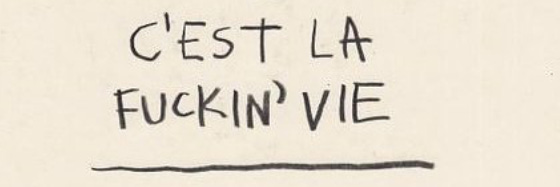 C'EST LA
FUCKIN' VIE